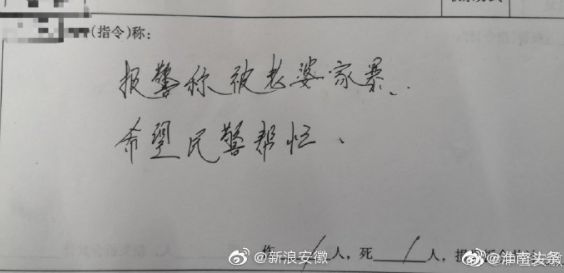 (指令)称:
报警称被老婆家暴、
希望民警帮忙、
伤 / 人,死 / 人,
@新浪安徽
@淮南头条